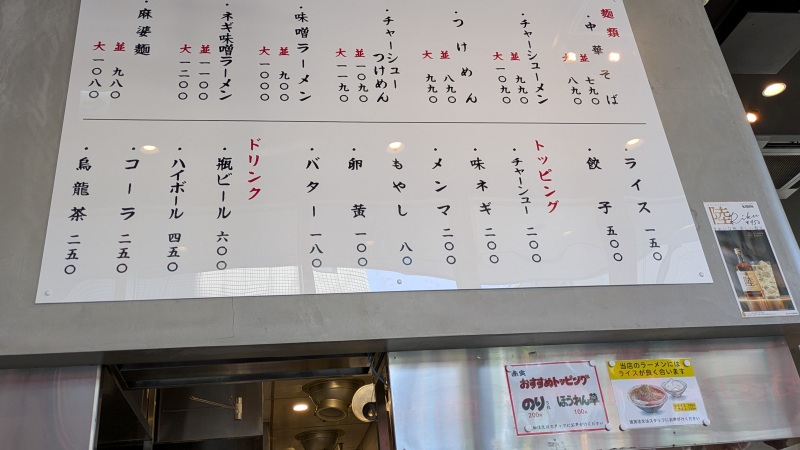 麺類
・中華そば
並 七九〇
大 八九〇
・チャーシューメン
並 九九〇
大 一〇九〇
・つけめん
並 八九〇
大 九九〇
・チャーシューつけめん
並 一〇九〇
大 一一九〇
・味噌ラーメン
並 九〇〇
大 一〇〇〇
・ネギ味噌ラーメン
並 一一〇〇
大 一二〇〇
・麻婆麺
並 九八〇
大 一〇八〇
・ライス 一五〇
・餃子 五〇〇
トッピング
・チャーシュー 二〇〇
・味ネギ 二〇〇
・メンマ 二〇〇
・もやし 八〇
・卵黄 一〇〇
・バター 一八〇
ドリンク
・瓶ビール 六〇〇
・ハイボール 四五〇
・コーラ 二五〇
・烏龍茶 二五〇
陸
おすすめトッピング
のり
200円
ほうれん草
160円
当店のラーメンには
ライスが良く合います